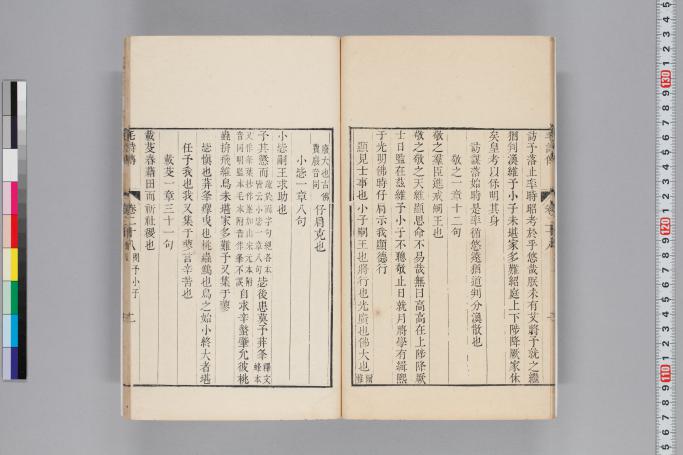 訪予落止率時昭考於乎悠哉朕未有艾將予就之繼
猶判渙維予小子未堪家多難紹庭上下陟降厥家休
矣皇考以保明其身
訪謀落始時是率循悠遠猶道判分渙散也
敬之一章十二句
敬之羣臣進戒嗣王也
敬之敬之天維顯思命不易哉無曰高高在上陟降厥
士日監在兹維予小子不聰敬止日就月將學有緝熙
于光明佛時仔肩示我顯德行
顯見士事也小子嗣王也將行也光廣也佛大也
廢大也古佛
廢音同
仔肩克也
小毖一章八句
小毖嗣王求助也
子其懲而
毖後患莫予荓蜂
自求辛螫肇允彼桃
蟲拚飛維鳥未堪家多難予又集于蓼
毖愼也荓蜂㾓曳也桃蟲鷦也鳥之始小終大者堪
任予我也我又集于蓼言辛苦也
載芟一章三十一句
載芟春藉田而祈社稷也
毛詩傳
卷二十八
閔予小子